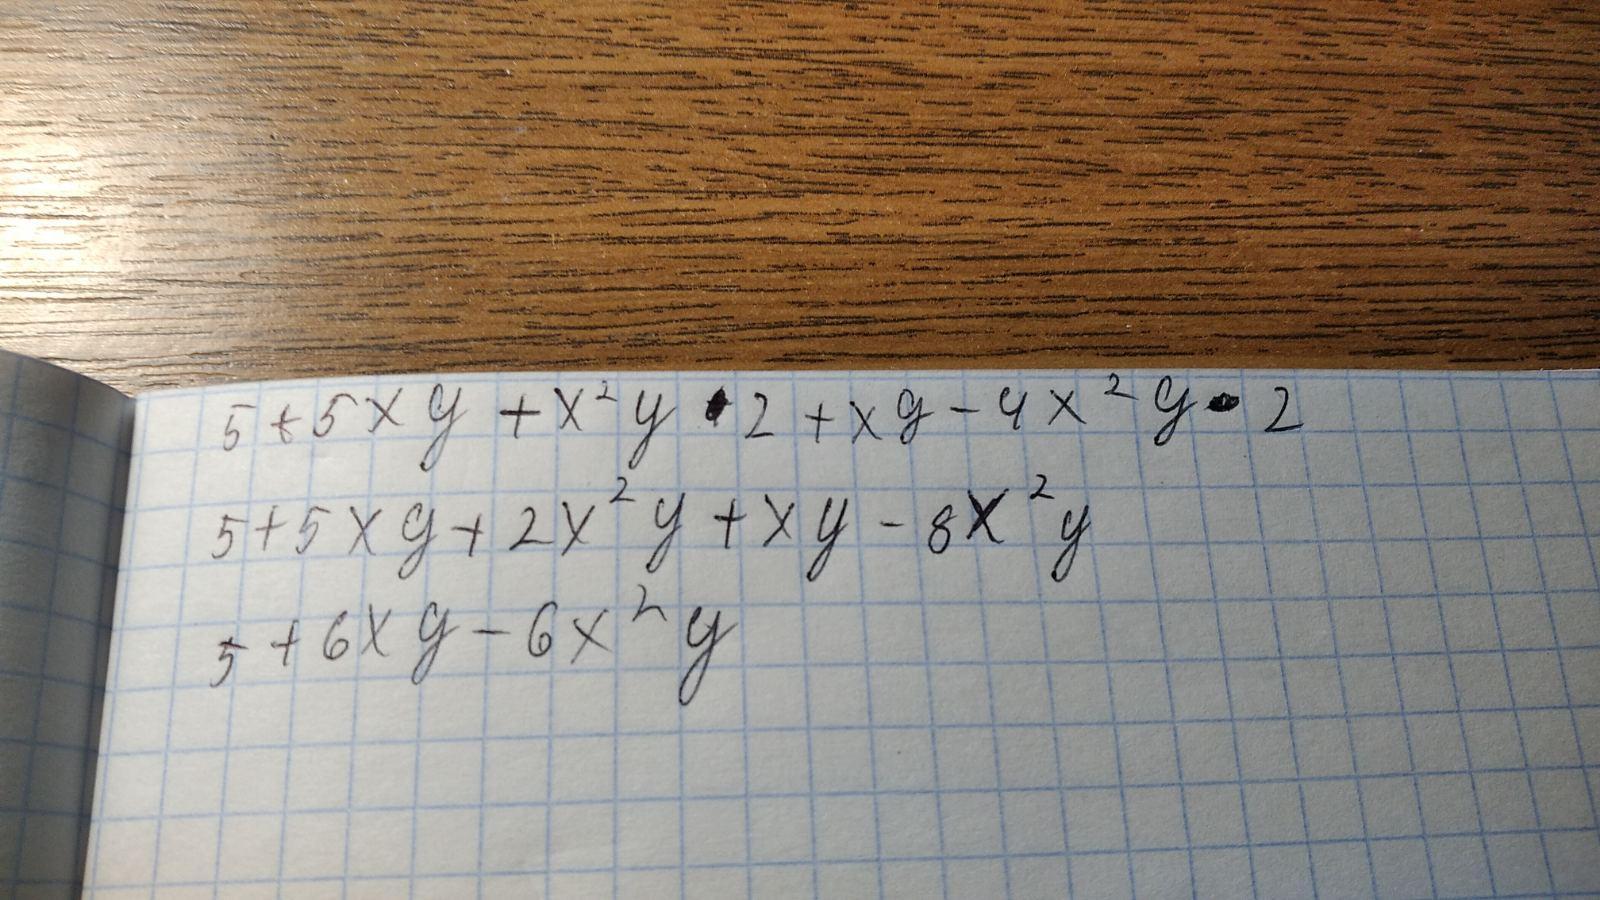 5+5xy+x²y•2+xy-4x²y•2
5+5xy+2x²y+xy-8x²y
5+6xy-6x²y